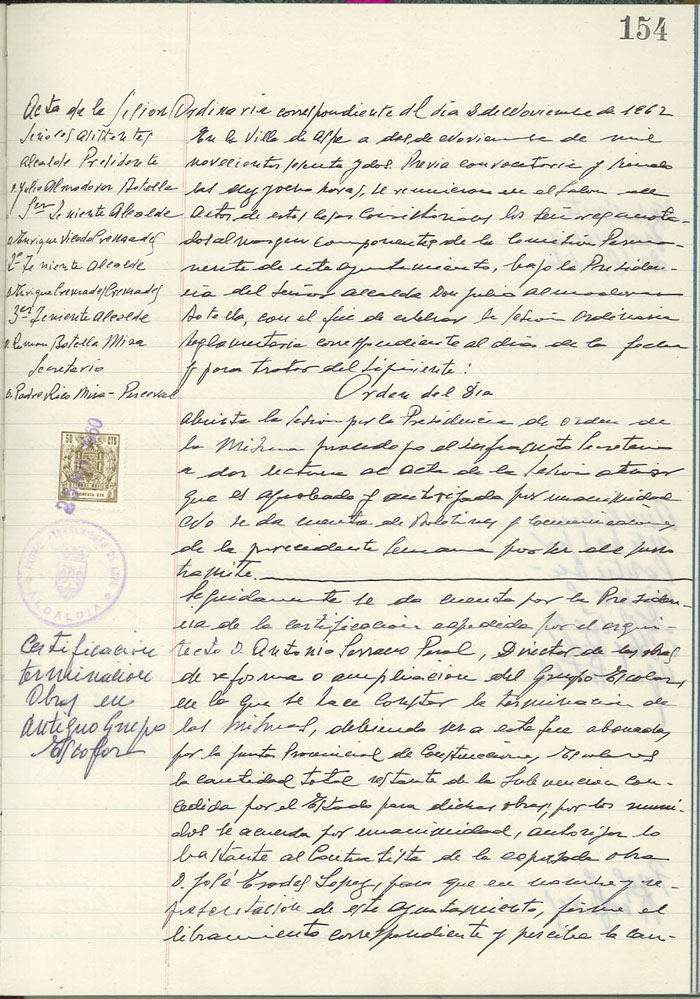 154
Acta de la Sesion Ordinaria correspondiente al dia 2 de Noviembre de 1962
Señores asistentes
Alcalde Presidente
D. Julio Almodovar Botella
1er Teniente Alcalde
D. Enrique Vicedo Cremades
2º Teniente Alcalde
D. Enrique Cremades Cremades
3er Teniente Alcalde
D. Ramon Botella Mira
Secretario
D. Pedro Rico Mira-Perceval
En la Villa de Aspe a dos de Noviembre de mil
novecientos sesenta y dos. Previa convocatoria y siendo
las horas, se reunieron en el Salon de
Actos de estas Casas Consistoriales los Señores anota-
dos al margen componentes de la Comision Perma-
nente de este Ayuntamiento, bajo la Presiden-
cia del Señor Alcalde Don Julio Almodovar
Botella, con el fin de celebrar la Sesion Ordinaria
reglamentaria correspondiente al dia de la fecha
y para tratar del siguiente:
Orden del Dia
Abierta la Sesion por la Presidencia de orden de
la Misma procedo yo el infrascrito Secretario
a dar lectura al acta de la Sesion anterior
que es aprobada y autorizada por unanimidad
se da cuenta de Boletines y Comunicaciones
de la precedente Semana por
tramite.
50 CTS
ALCALDIA
Seguidamente se da cuenta por la Presiden-
cia de la certificacion expedida por el arqui-
tecto D. Antonio Serrano Peral, Director de las obras
de reforma o ampliacion del Grupo Escolar,
en la que se hace constar la terminacion de
las mismas, debiendo ser a este fin abonada,
por la Junta Provincial de Construcciones Escolares
la cantidad total restante de la Subvencion con-
cedida por el Estado para dichas obras, por los reuni-
dos se acuerda por unanimidad, autorizar lo
bastante al Contratista de la expresada obra
D. José Lopez, para que en nombre y re-
presentacion de este Ayuntamiento, firme el
libramiento correspondiente y perciba la can-
Certificacion
terminacion
Obras en
Antiguo Grupo
Escolar